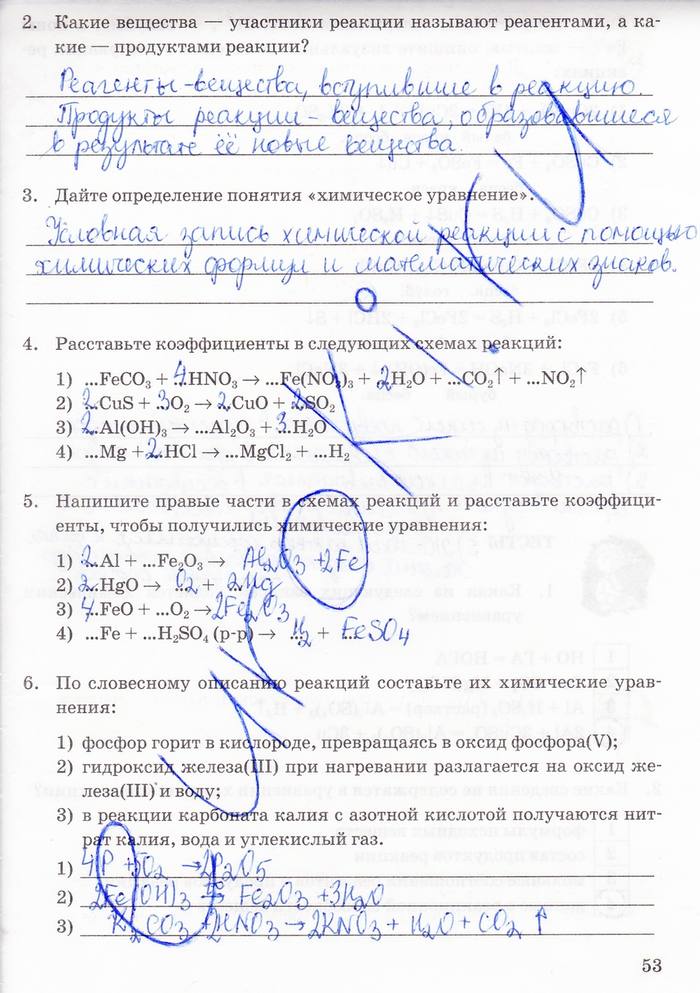 2. Какие вещества — участники реакции называют реагентами, а ка-
кие — продуктами реакции?
Реагенты-вещества, вступившие в реакцию.
Продукты реакции - вещества, образовавшиеся
в результате её новые вещества.
3. Дайте определение понятия «химическое уравнение».
Условная запись химической реакции с помощью
химических формул и математических знаков.
4. Расставьте коэффициенты в следующих схемах реакций:
1) ...FeCO₃ + 4HNO₃ → ...Fe(NO₃)₃ + 2H₂O + ...CO₂↑ + ...NO₂↑
2) 2CuS + 3O₂ → 2CuO + 2SO₂
3) 2Al(OH)₃ → ...Al₂O₃ + 3H₂O
4) ...Mg + 2HCl → ...MgCl₂ + ...H₂
5. Напишите правые части в схемах реакций и расставьте коэффици-
енты, чтобы получились химические уравнения:
1) 2Al + ...Fe₂O₃ → Al₂O₃ + 2Fe
2) 2HgO → O₂ + 2Hg
3) 4FeO + ...O₂ → 2Fe₂O₃
4) ...Fe + ...H₂SO₄ (р-р) → H₂ + FeSO₄
6. По словесному описанию реакций составьте их химические урав-
нения:
1) фосфор горит в кислороде, превращаясь в оксид фосфора(V);
2) гидроксид железа(III) при нагревании разлагается на оксид же-
леза(III) и воду;
3) в реакции карбоната калия с азотной кислотой получаются нит-
рат калия, вода и углекислый газ.
1) 4P + 5O₂ → 2P₂O₅
2) 2Fe(OH)₃ → Fe₂O₃ + 3H₂O
3) K₂CO₃ + 2HNO₃ → 2KNO₃ + H₂O + CO₂ ↑
53